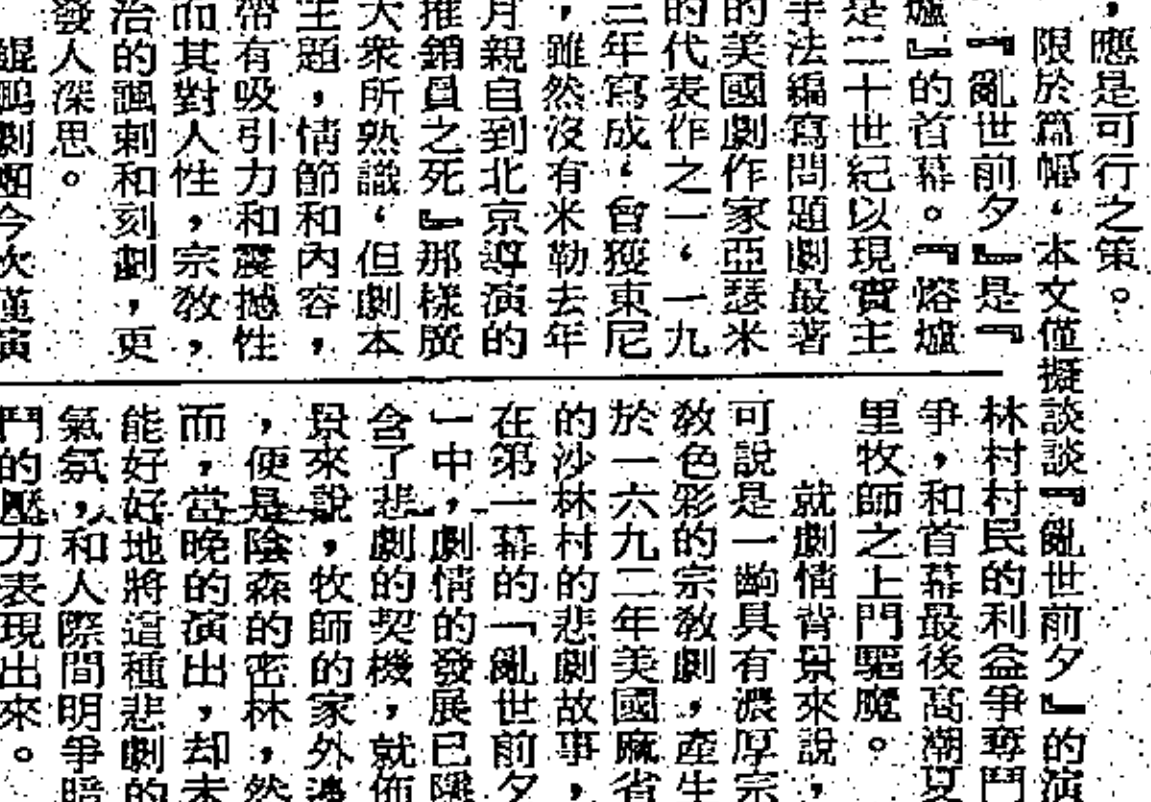 ，應是可行之策。
限於篇幅，本文僅擬談談『亂世前夕』的演
『亂世前夕』是『
爐』的首幕。『熔爐
是二十世紀以現實主
手法編寫問題劇最著
的美國劇作家亞瑟米
的代表作之一，一九
三年寫成，曾獲東尼
，雖然沒有米勒去年
月親自到北京導演的
推銷員之死』那樣廣
大衆所熟識，但劇本
主題，情節和內容，
帶有吸引力和震撼性
而其對人性，宗教，
治的諷刺和刻劃，更
發人深思。
鯤鵬劇團今次僅演
林村村民的利益爭奪鬥
爭，和首幕最後高潮夏
里牧師之上門驅魔。
就劇情背景來說，
可說是一齣具有濃厚宗
教色彩的宗教劇，產生
於一六九二年美國麻省
的沙林村的悲劇故事，
在第一幕的「亂世前夕
」中，劇情的發展已隱
含了悲劇的契機，就佈
景來說，牧師的家外邊
，便是陰森的密林，然
而，當晚的演出，却未
能好好地將這種悲劇的
氣氛，和人際間明爭暗
鬥的壓力表現出來。